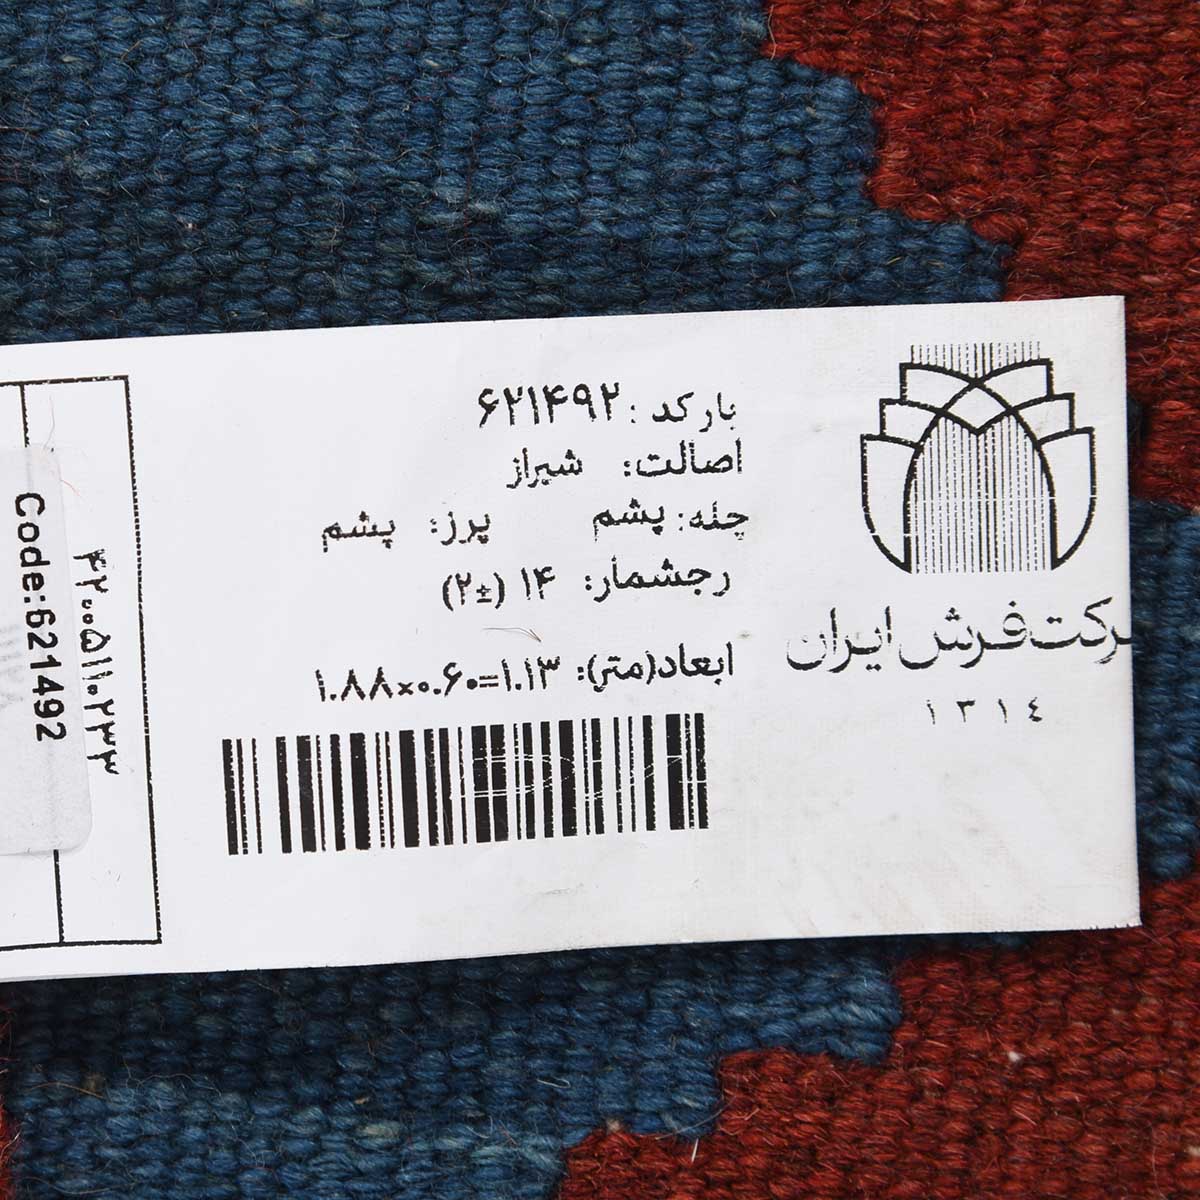 بارکد: ۶۲۱۴۹۲
اصالت: شیراز
چله: پشم پرز: پشم
رجشمار: ۱۴ (±۲)
ابعاد(متر): ۱.۸۸×۰.۶۰=۱.۱۳
شرکت فرش ایران
١٣١٤
Code:621492
۴۲۰۰۵۱۱۰۲۳۳